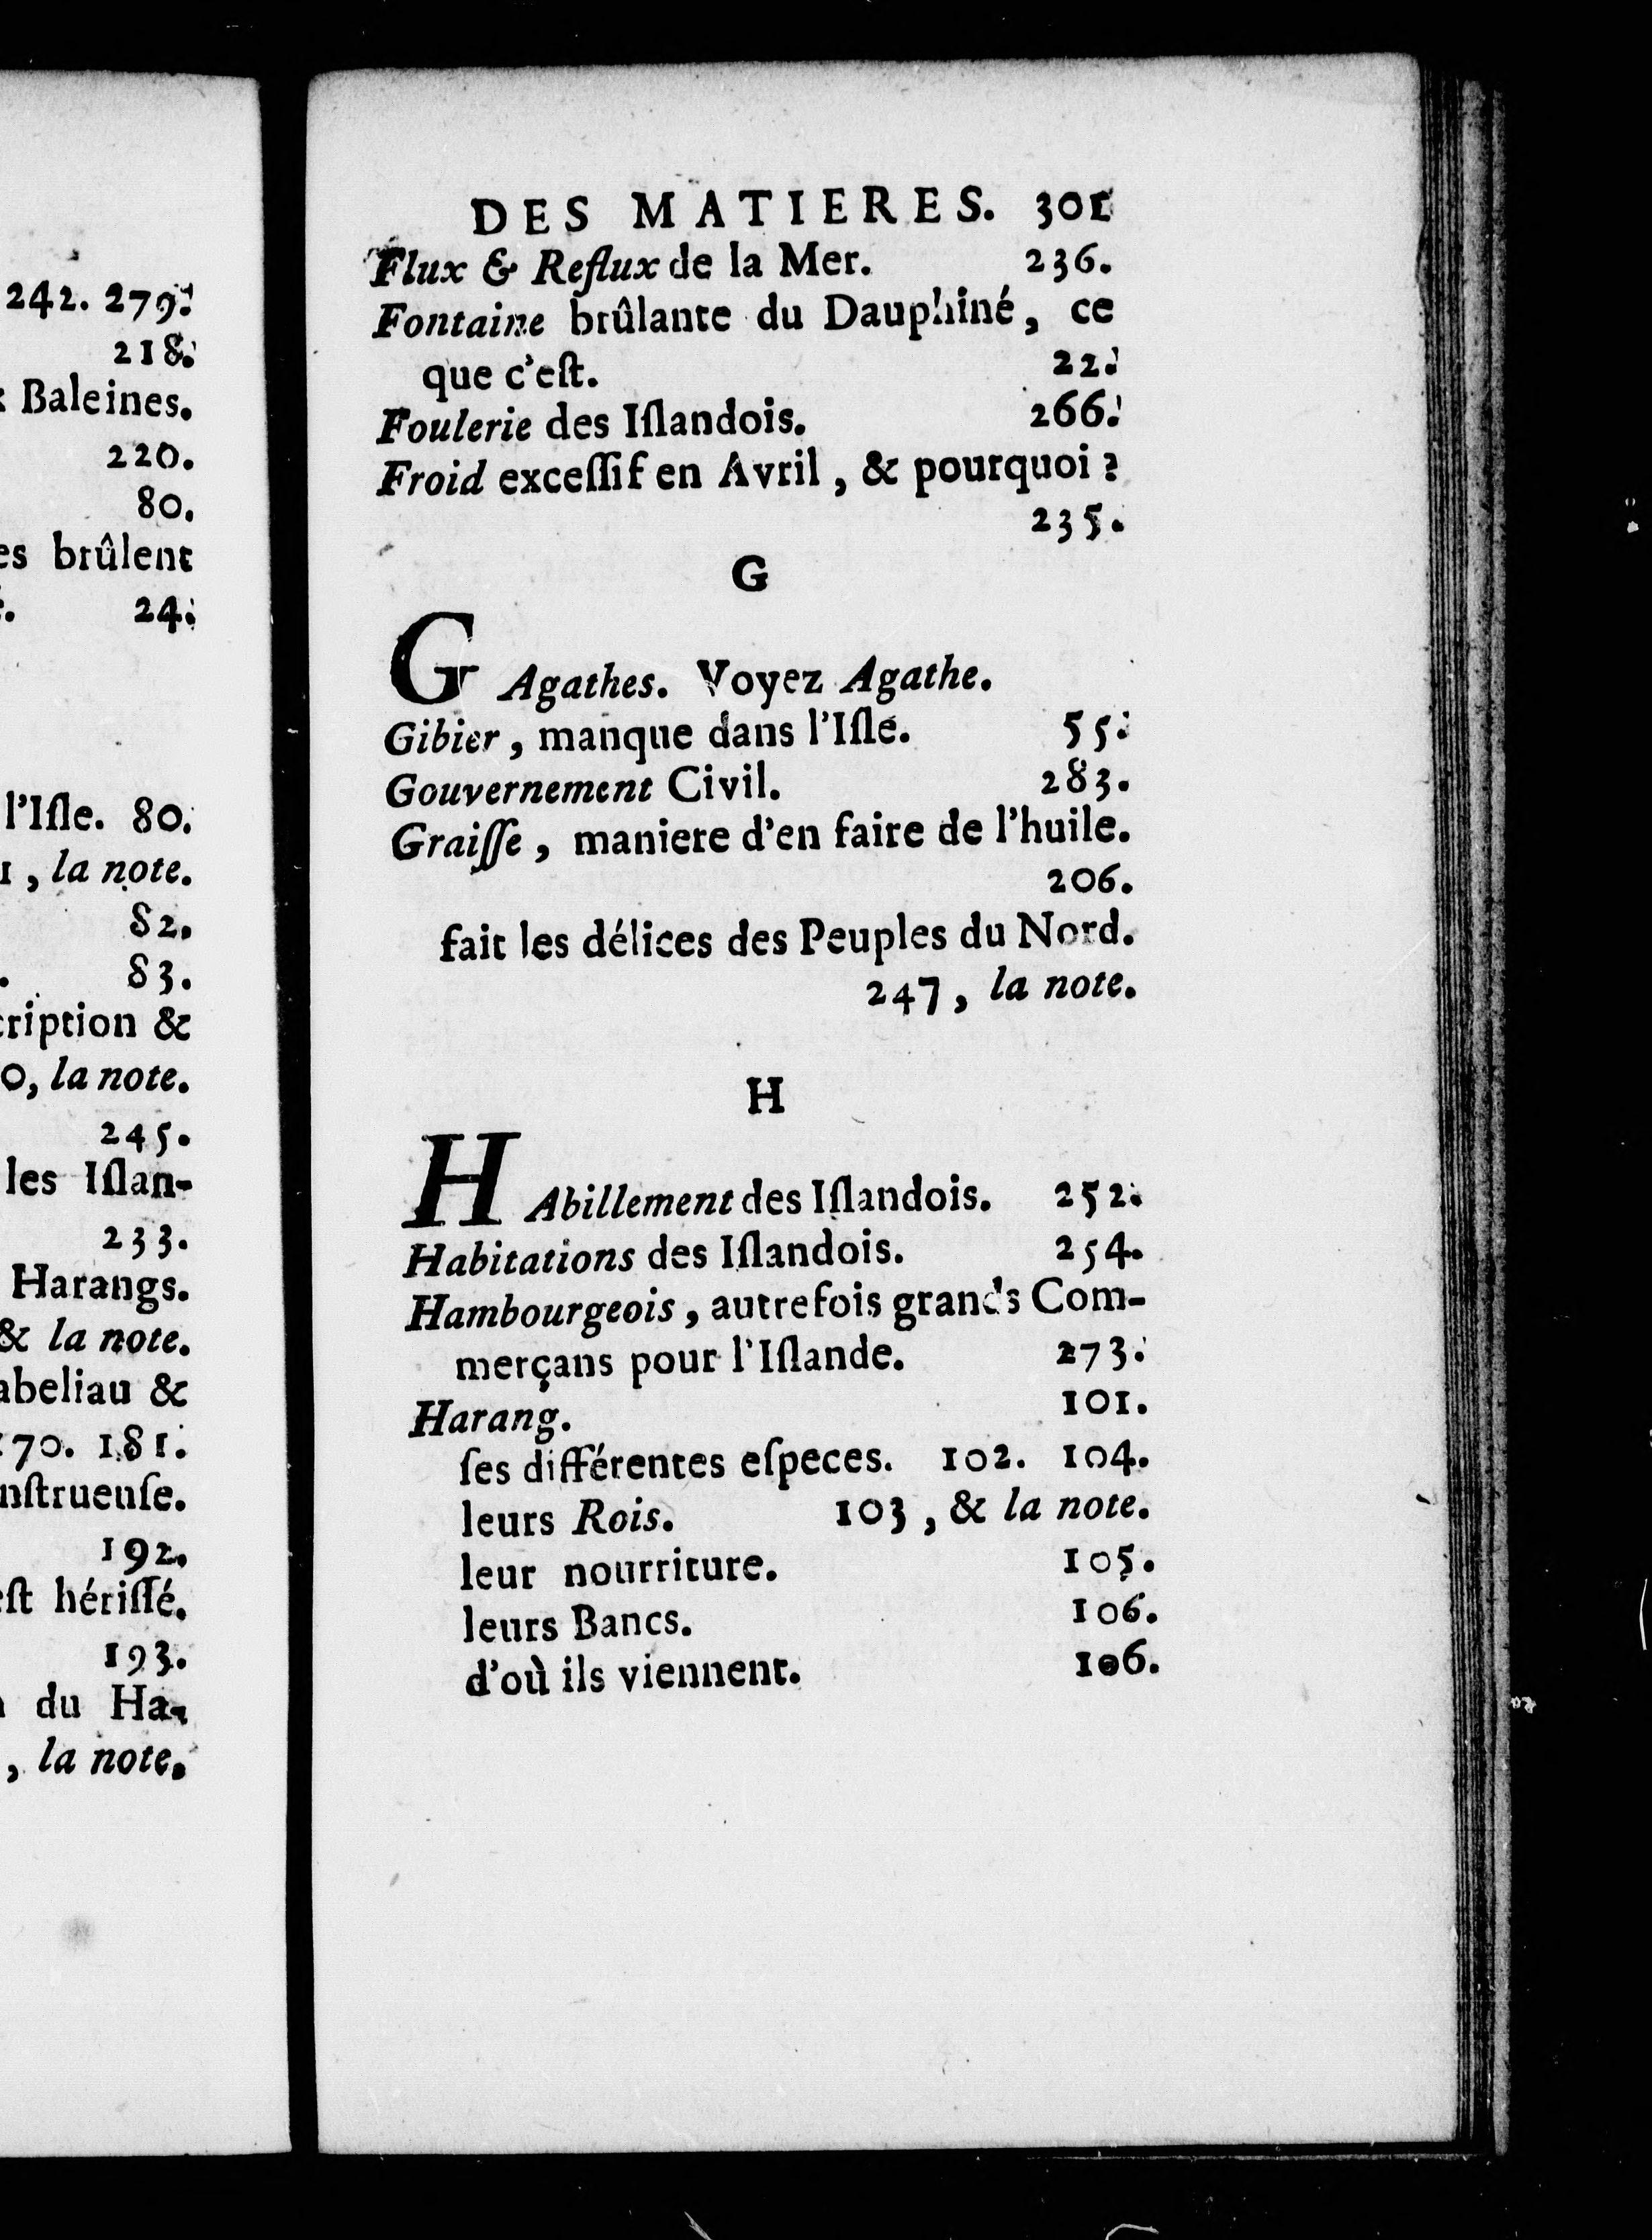 242. 279.
218.
Baleines.
220.
80.
es brûlent
24.
l'Iſle. 80.
1, la note.
82.
83.
cription &
0, la note.
245.
les Iſlan-
233.
Harangs.
& la note.
abeliau &
170. 181.
nſtrueuſe.
192.
eſt hériſſé.
193.
du Ha-
, la note.
DES MATIERES. 301
Flux & Reflux de la Mer. 236.
Fontaine brûlante du Dauphiné, ce
que c'eſt. 22.
Foulerie des Iſlandois. 266.
Froid exceſſif en Avril, & pourquoi ?
235.
G
GAgathes. Voyez Agathe.
Gibier, manque dans l'Iſle. 55.
Gouvernement Civil. 283.
Graiſſe, maniere d'en faire de l'huile.
206.
fait les délices des Peuples du Nord.
247, la note.
H
HAbillement des Iſlandois. 252.
Habitations des Iſlandois. 254.
Hambourgeois, autrefois grands Com-
merçans pour l'Iſlande. 273.
Harang. 101.
ſes différentes eſpeces. 102. 104.
leurs Rois. 103, & la note.
leur nourriture. 105.
leurs Bancs. 106.
d'où ils viennent. 106.